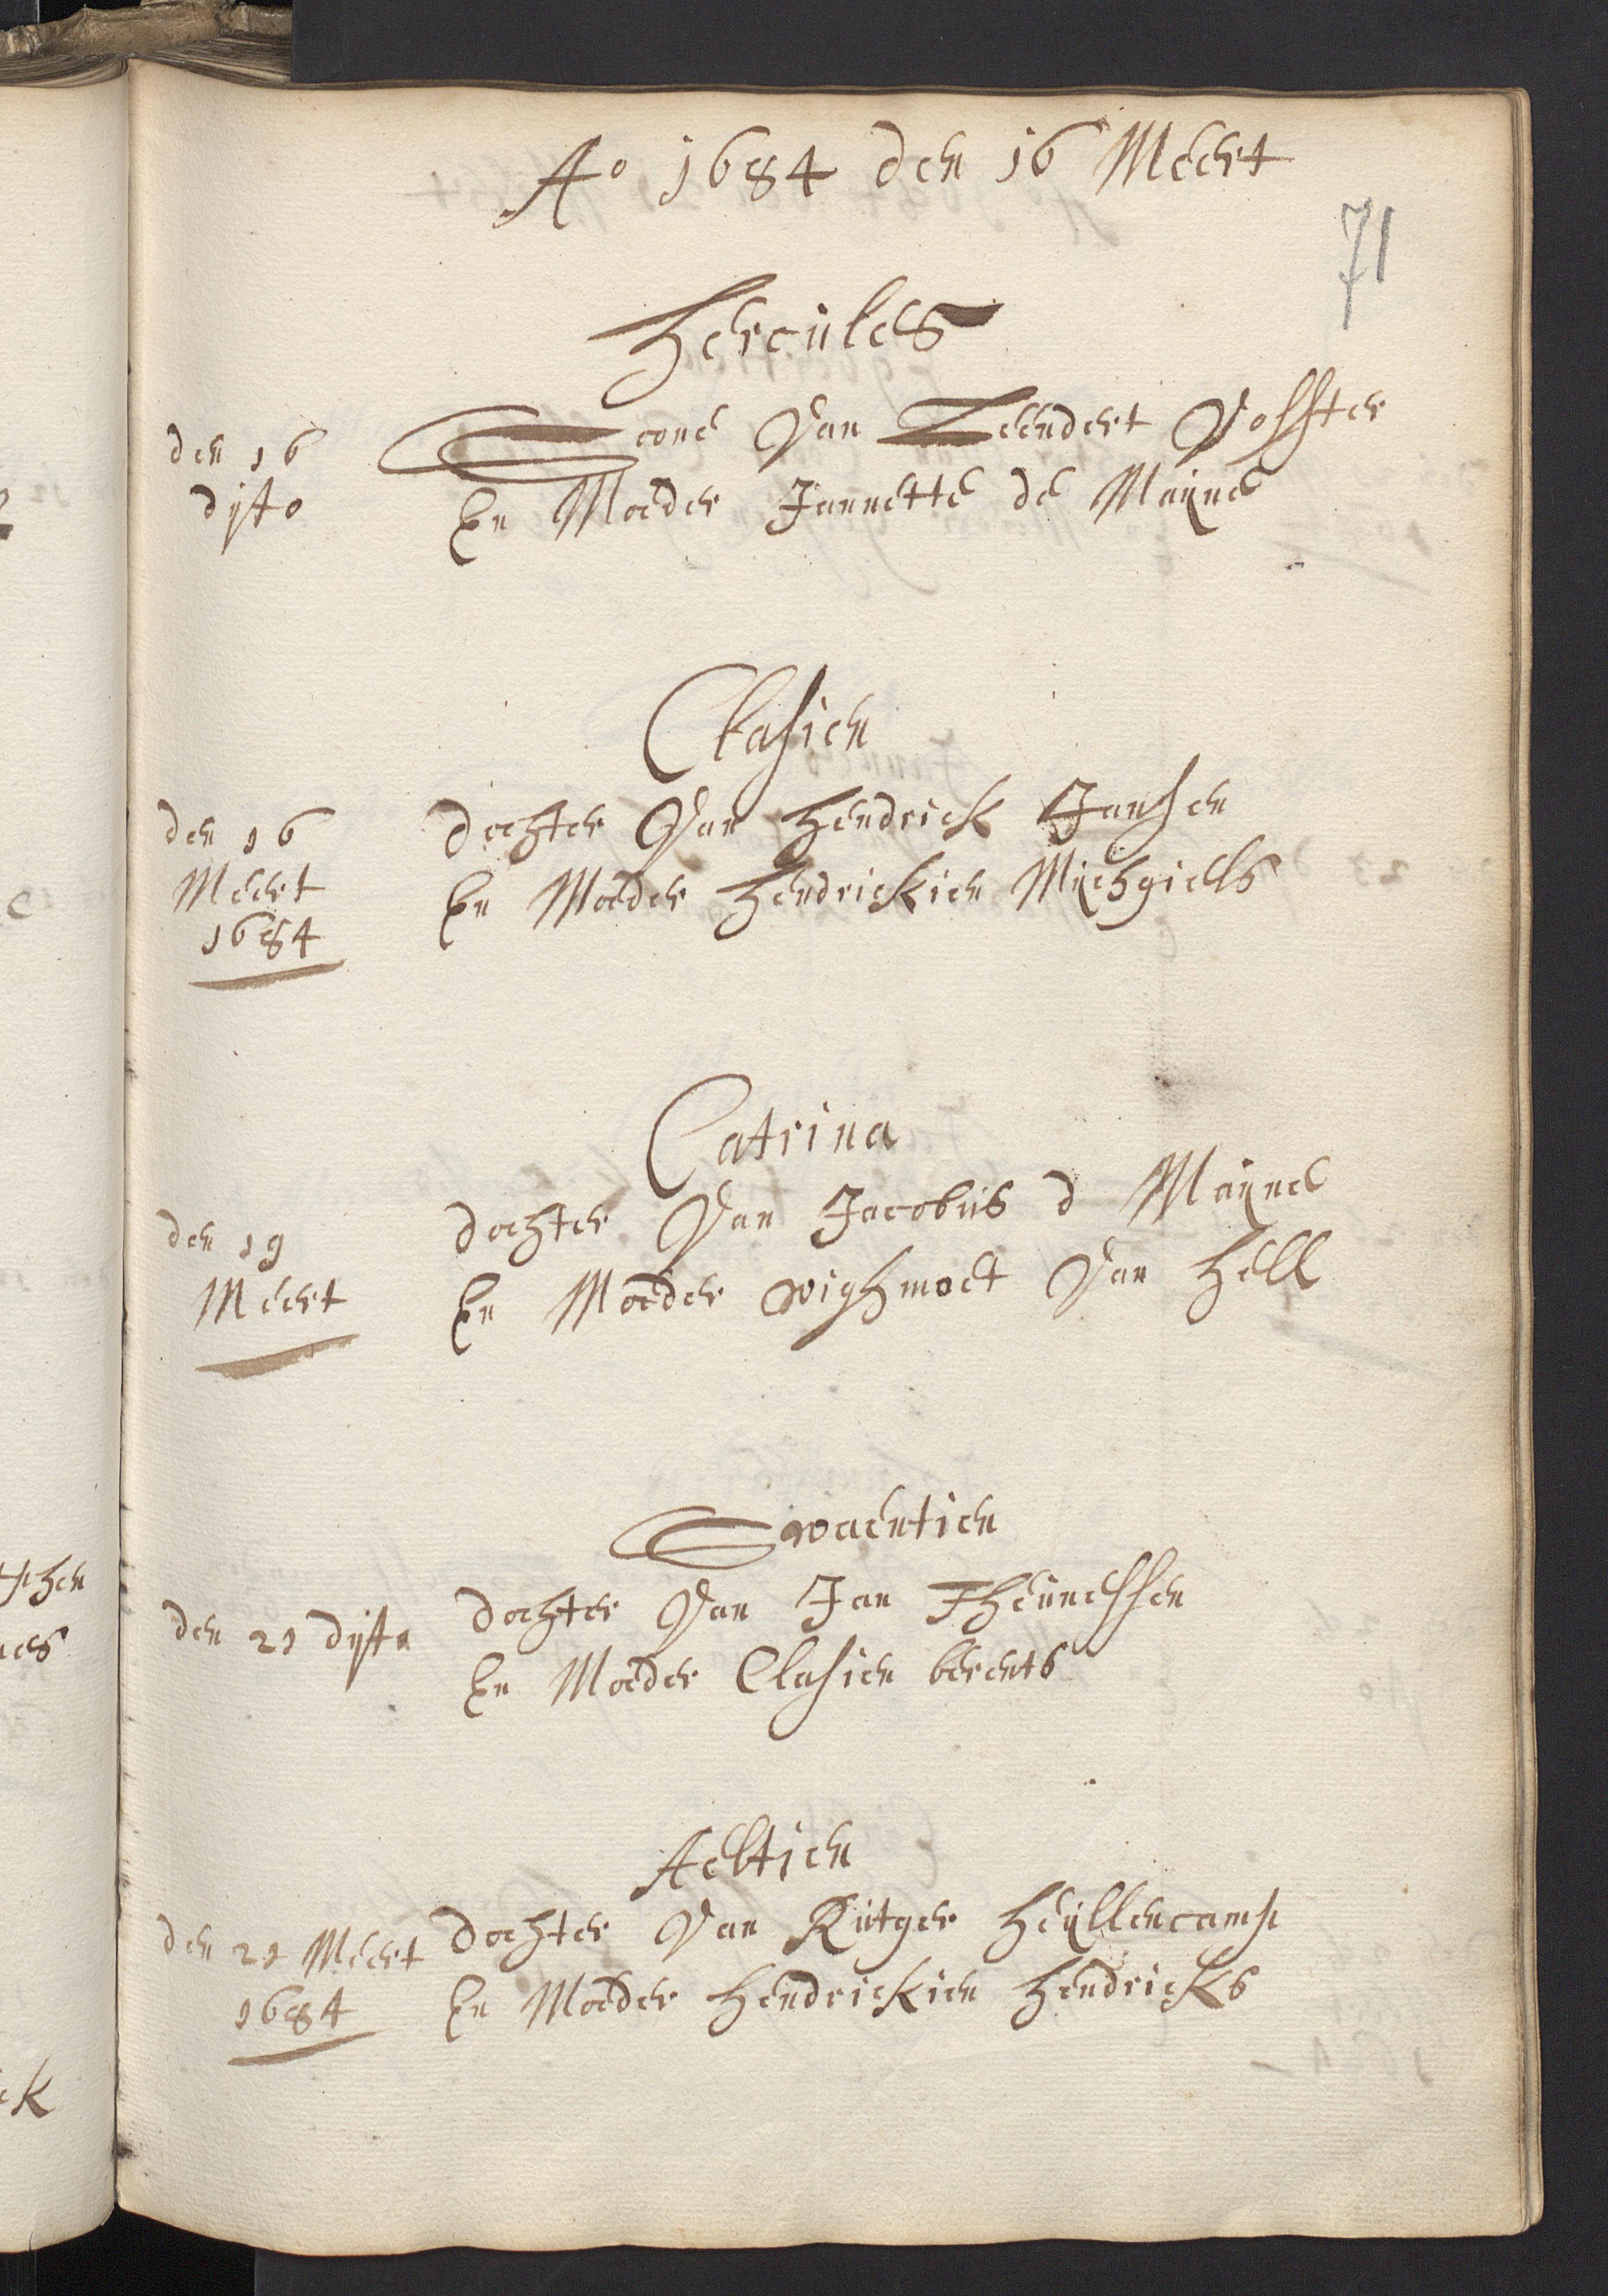 Ao 1684 den 16 Meert
71
Hercules
den 16 Soone Van Leendert Vosster
dijto En Moeder Jannette de Maijne
Clasien
den 16 dochter Van Hendrick Jansen
Meert En Moeder Hendrickien Miichgiels
1684
Catrina
den 19 dochter Van Jacobus d Maijne
Meert En Moeder wighmoet Van Hell
Swaentien
den 21 dijto dochter Van Jan Theunessen
En Moeder Clasien berents
Aeltien
den 21 Meert dochter Van Rutger Heijllencamp
1684 En Moeder Hendrickien Hendricks